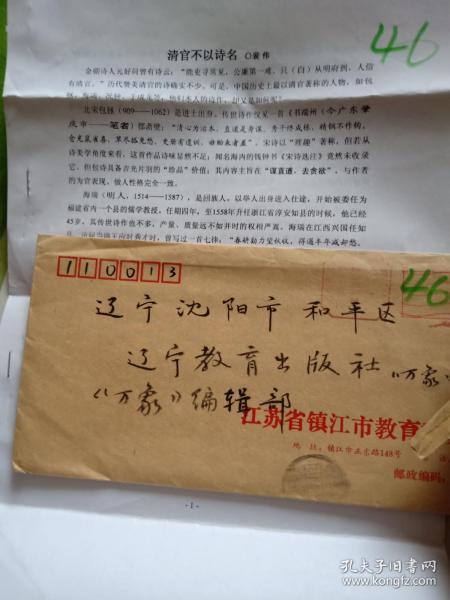 清官不以诗名 〇裴伟
46
金朝诗人元好问曾有诗云:“能吏寻常见,公廉第一难。只(自)从明府到,人信
有清官。”历代赞美清官的诗确实不少,可是,中国历史上最以清官著称的人物,如包
北宋包拯(909——1062)是进士出身,传世诗作仅又一首《书端州(今广东肇
庆市——笔者)郡斋壁:“清心为治本,直道是身谋。秀干终成栋,精钢不作钩。
仓充鼠雀喜,草尽狐兔愁。史册有遗训,毋贻来者羞”。宋诗以“理趣”著称,但若从
诗美学角度来看,这首作品诗味显然不足;闻名海内的钱钟书《宋诗选注》竟然未收录
它。但包诗具备吉光片羽的“珍品”价值;其内容主旨在“谋直道,去贪欲”,与作者
的为官表现、做人性格完全一致。
海瑞(明人,1514——1587),是回族人,以举人出身进入仕途,开始被委任为
福建省内一个县的儒学教授,任期四年,至1558年升任浙江省淳安知县的时候,他已经
45岁。其传世诗作也不多,产量、质量远不如并时的权相严嵩。海瑞在江西兴国任知
县
曾写过一首七律:“春耕勤力望秋收,得遇丰年减却愁。
110013
46
辽宁沈阳市 和平区
辽宁教育出版社 “万象
《万象》编辑部
江苏省镇江市教育
地址:镇江市正东路148号
邮政编码:
-1-
孔夫子旧书网
www.kongfz.com